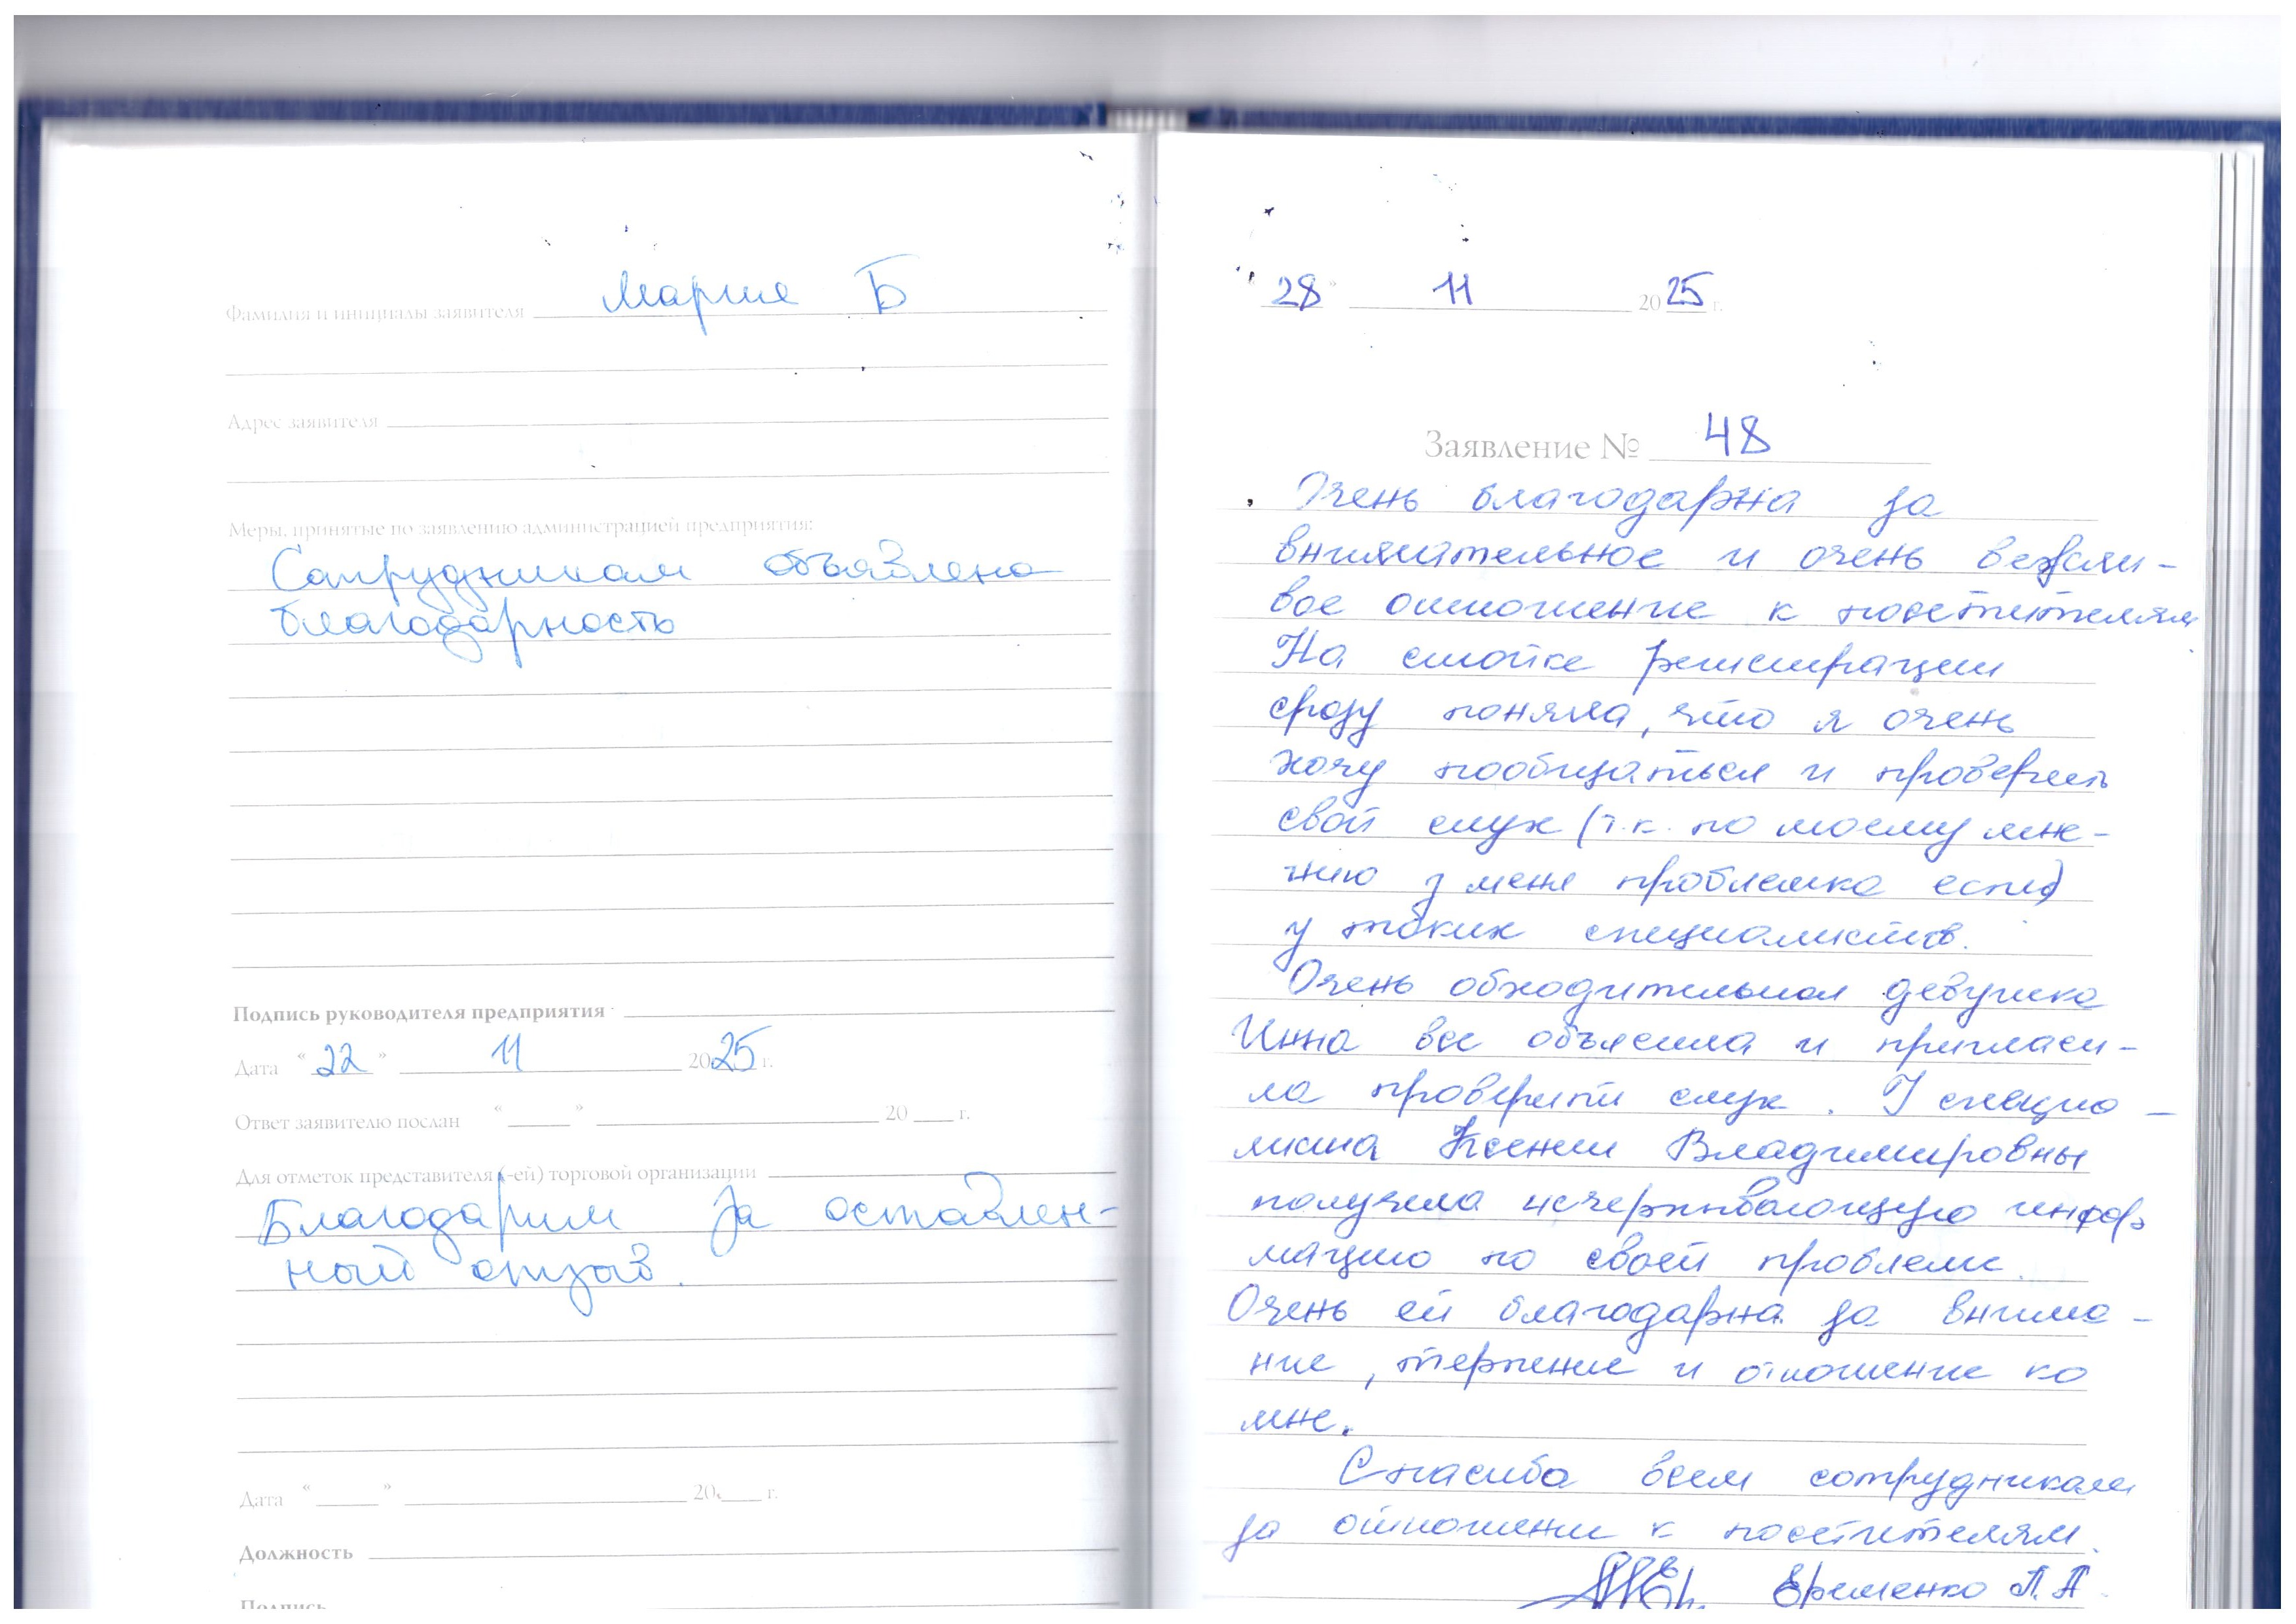 Фамилия и инициалы заявителя Мария Б
Адрес заявителя
Меры, принятые по заявлению администрацией предприятия:
Сотрудникам объявлена
благодарность
Подпись руководителя предприятия
Дата "22" 11 2025 г.
Ответ заявителю послан " " 20 г.
Для отметок представителя (-ей) торговой организации
Благодарим за оставлен-
ный отзыв.
Дата " " 20 г.
Должность
Подпись
"28" 11 2025 г.
Заявление № 48
Очень благодарна за
внимательное и очень вежли-
вое отношение к посетителям
На стойке регистрации
сразу поняла, что я очень
хочу пообщаться и проверить
свой слух (т.к. по моему мне-
нию у меня проблемка есть)
у таких специалистов.
Очень обходительная девушка
Инна все объяснила и пригласи-
ла проверить слух. У специа-
листа Ксении Владимировны
получила исчерпывающую инфор
мацию по своей проблеме.
Очень ей благодарна за внима-
ние, терпение и отношение ко
мне.
Спасибо всем сотрудникам
за отношение к посетителям.
Еременко Л. А